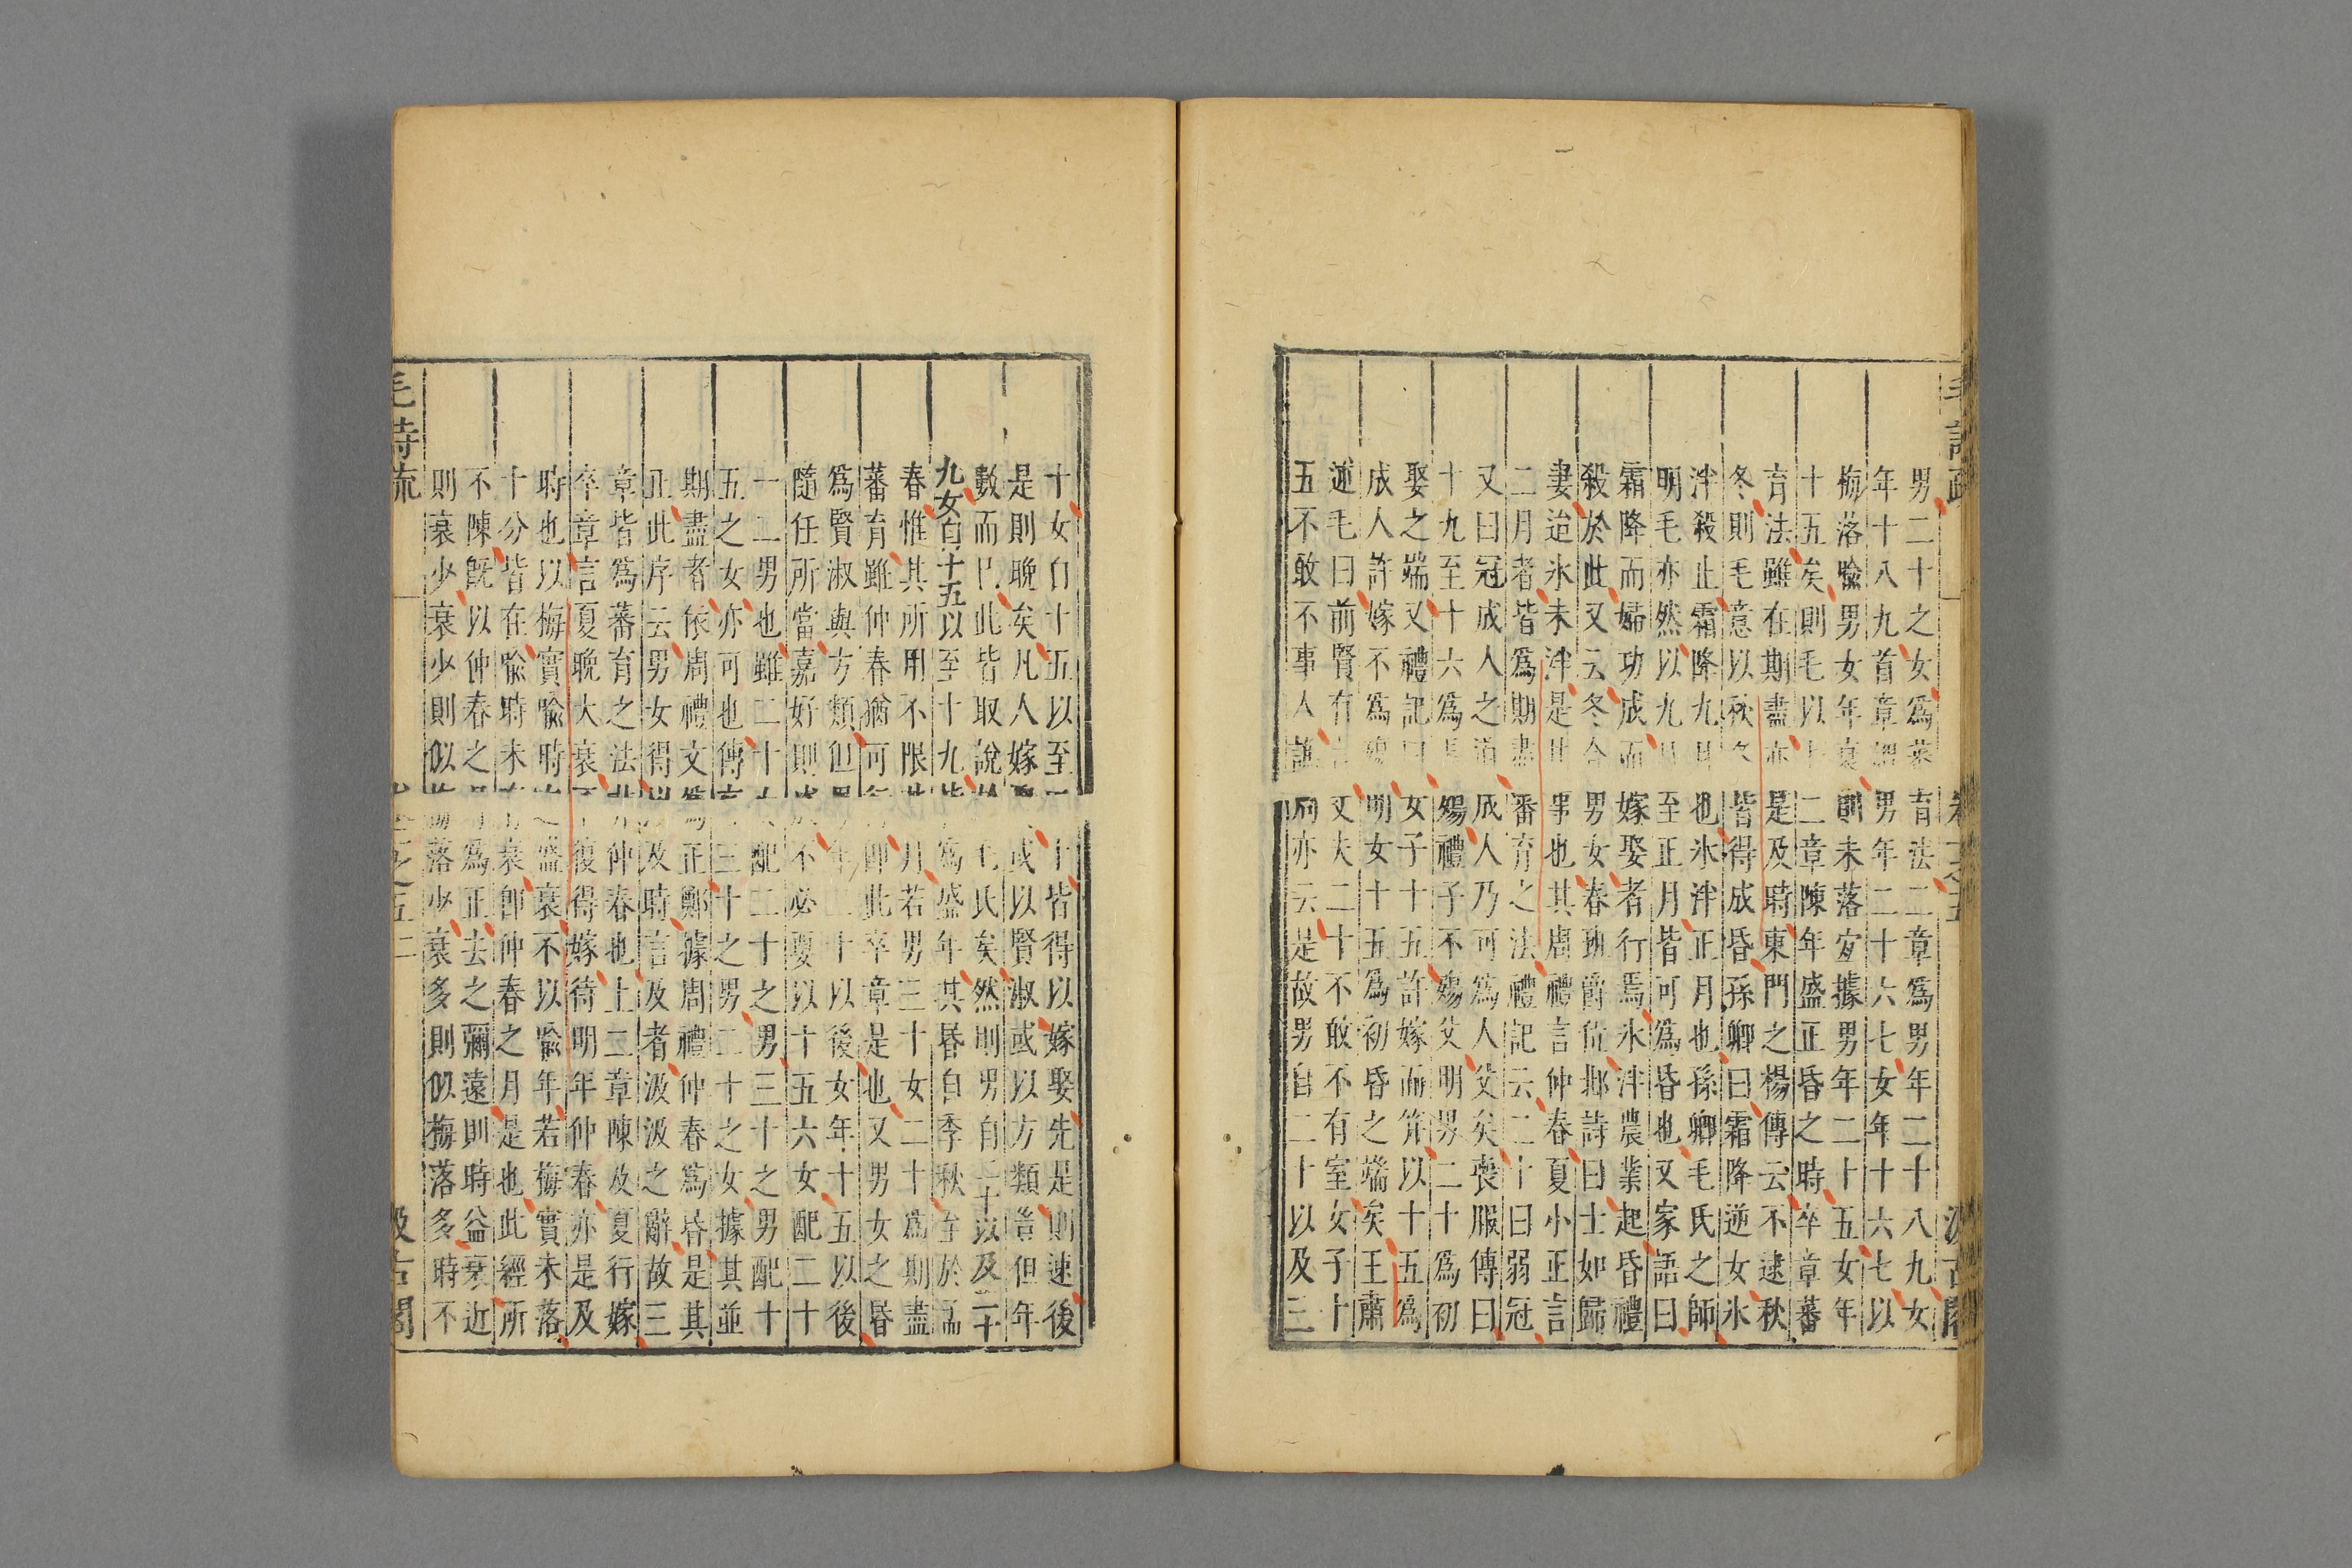 毛詩疏 卷一之五 汲古閣
男二十之女爲蕃育法二章爲男年二十八九女
年十八九首章謂男年二十六七女年十六七以
梅落喻男女年衰則未落宜據男年二十五女年
十五矣則毛以上二章陳年盛正昏之時卒章蕃
育法雖在期盡亦是及時東門之楊傳云不逮秋
冬則毛意以秋冬皆得成昏孫卿曰霜降逆女氷
泮殺止霜降九月也氷泮正月也孫卿毛氏之師
明毛亦然以九月至正月皆可爲昏也又家語曰
霜降而婦功成而嫁娶者行焉氷泮農業起昏禮
殺於此又云冬合男女春班爵位邶詩曰士如歸
妻迨氷未泮是其事也其周禮言仲春夏小正言
二月者皆爲期盡蕃育之法禮記云二十曰弱冠
又曰冠成人之道成人乃可爲人父矣喪服傳曰
十九至十六爲長殤禮子不殤父明男二十爲初
娶之端又禮記曰女子十五許嫁而笄以十五爲
成人許嫁不爲殤明女十五爲初昏之端矣王肅
述毛曰前賢有言丈夫二十不敢不有室女子十
五不敢不事人譙周亦云是故男自二十以及三
十女自十五以至二十皆得以嫁娶先是則速後
是則晚矣凡人嫁娶或以賢淑或以方類豈但年
數而已此皆取說於毛氏矣然則男自二十以及二十
九女自十五以至十九皆爲盛年其昏自季秋至於孟
春惟其所用不限其月若男三十女二十爲期盡
蕃育雖仲春猶可行即此卒章是也又男女之昏
爲賢淑與方類但男年二十以後女年十五以後
隨任所當嘉好則成不必要以十五六女配二十
一二男也雖二十女配二十之男三十之男配十
五之女亦可也傳言三十之男二十之女據其並
期盡者依周禮文爲正鄭據周禮仲春爲昏是其
正此序云男女得以及時言及者汲汲之辭故三
章皆爲蕃育之法非仲春也上二章陳及夏行嫁
卒章言夏晚大衰不復得嫁待明年仲春亦是及
時也以梅實喻時之盛衰不以喻年若梅實未落
十分皆在喻時未有衰即仲春之月是也此經所
不陳既以仲春之月爲正去之彌遠則時益衰近
則衰少衰少則似梅落少衰多則似梅落多時不
毛詩疏 卷一之五 二 汲古閣